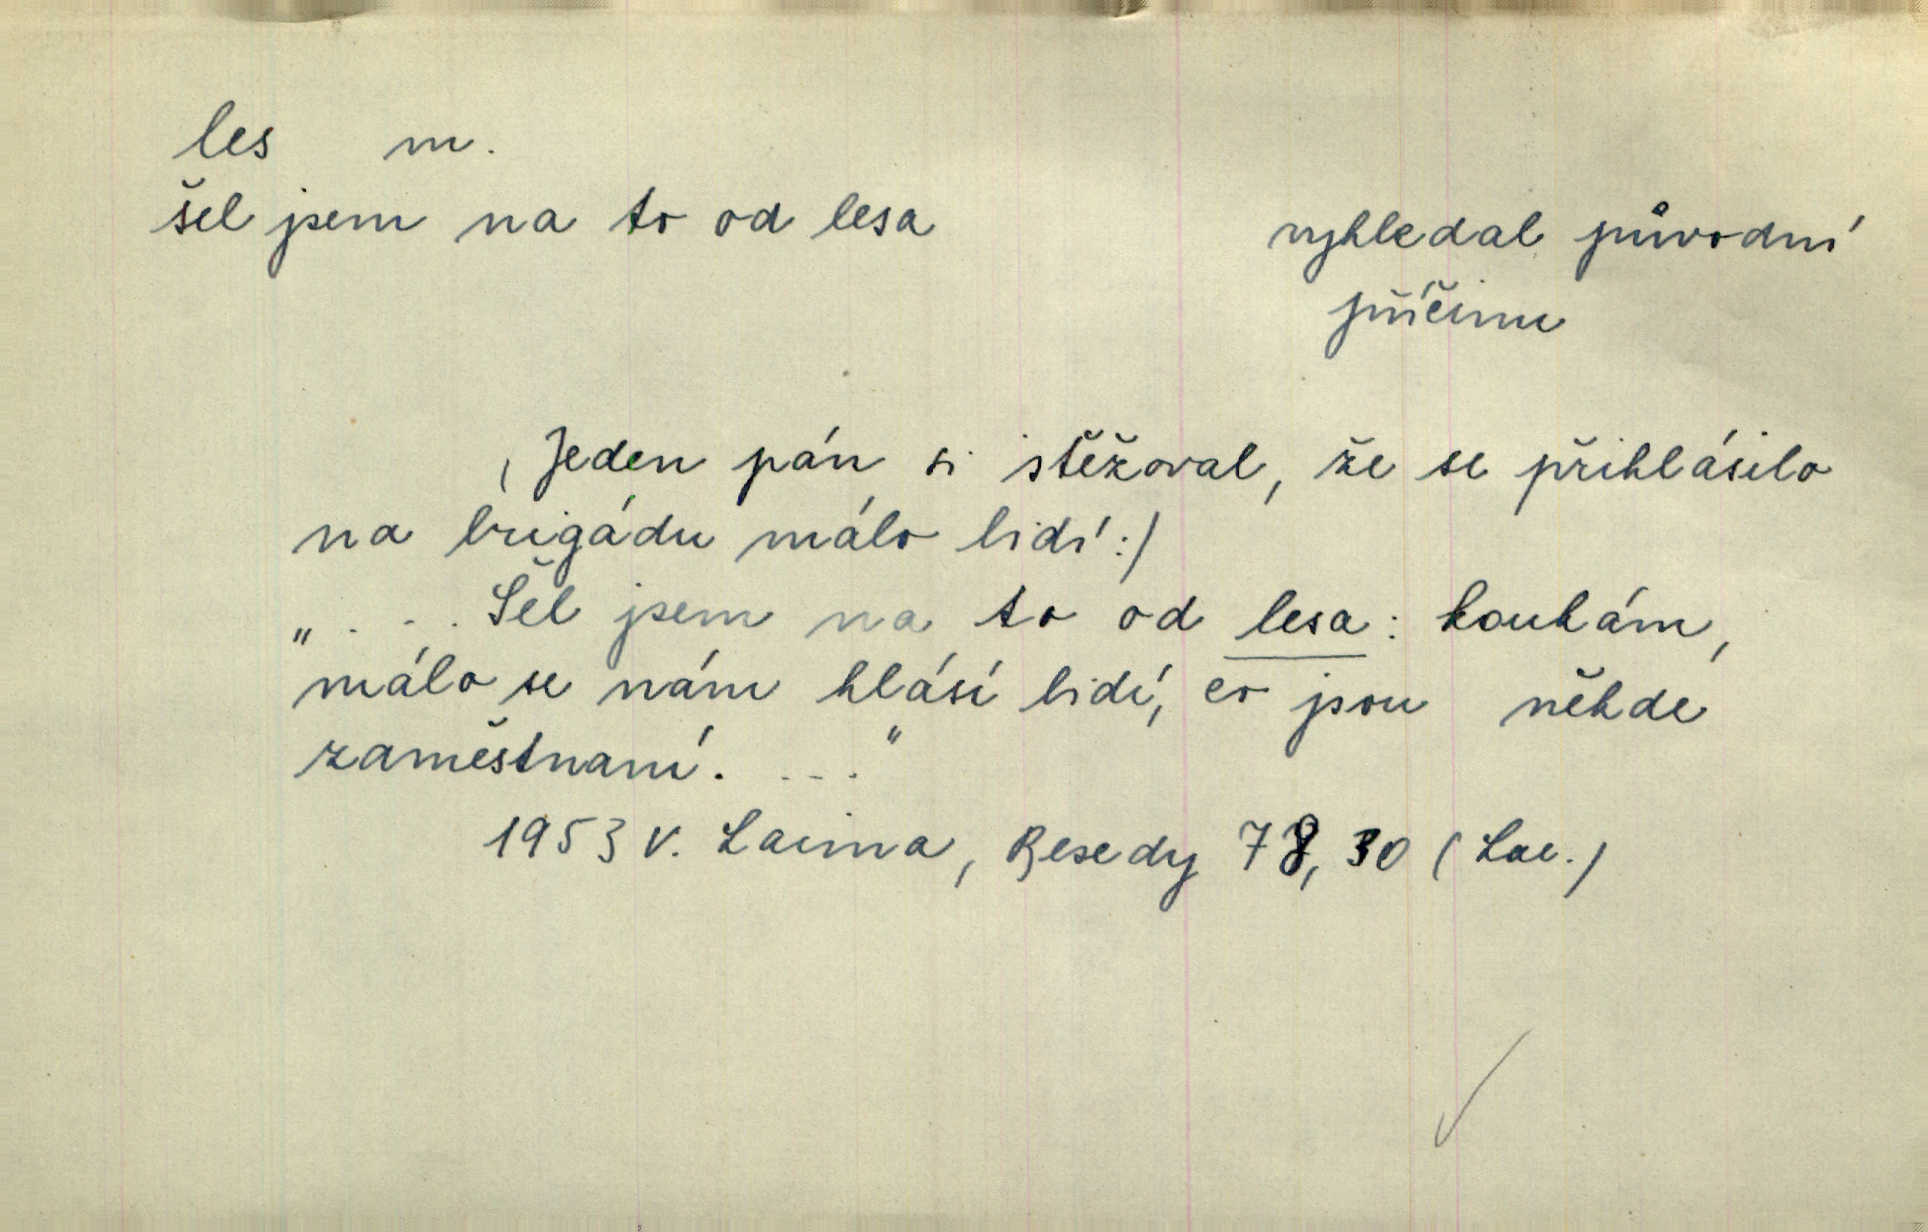 les m.
šel jsem na to od lesa
vyhledal původní
příčinu
(Jeden pán si stěžoval, že se přihlásilo
na brigádu málo lidí:)
„... Šel jsem na to od lesa: koukám,
málo se nám hlásí lidí, co jsou někde
zaměstnaní. ..."
1953 V. Lacina, Besedy 78, 30 (Lac.)